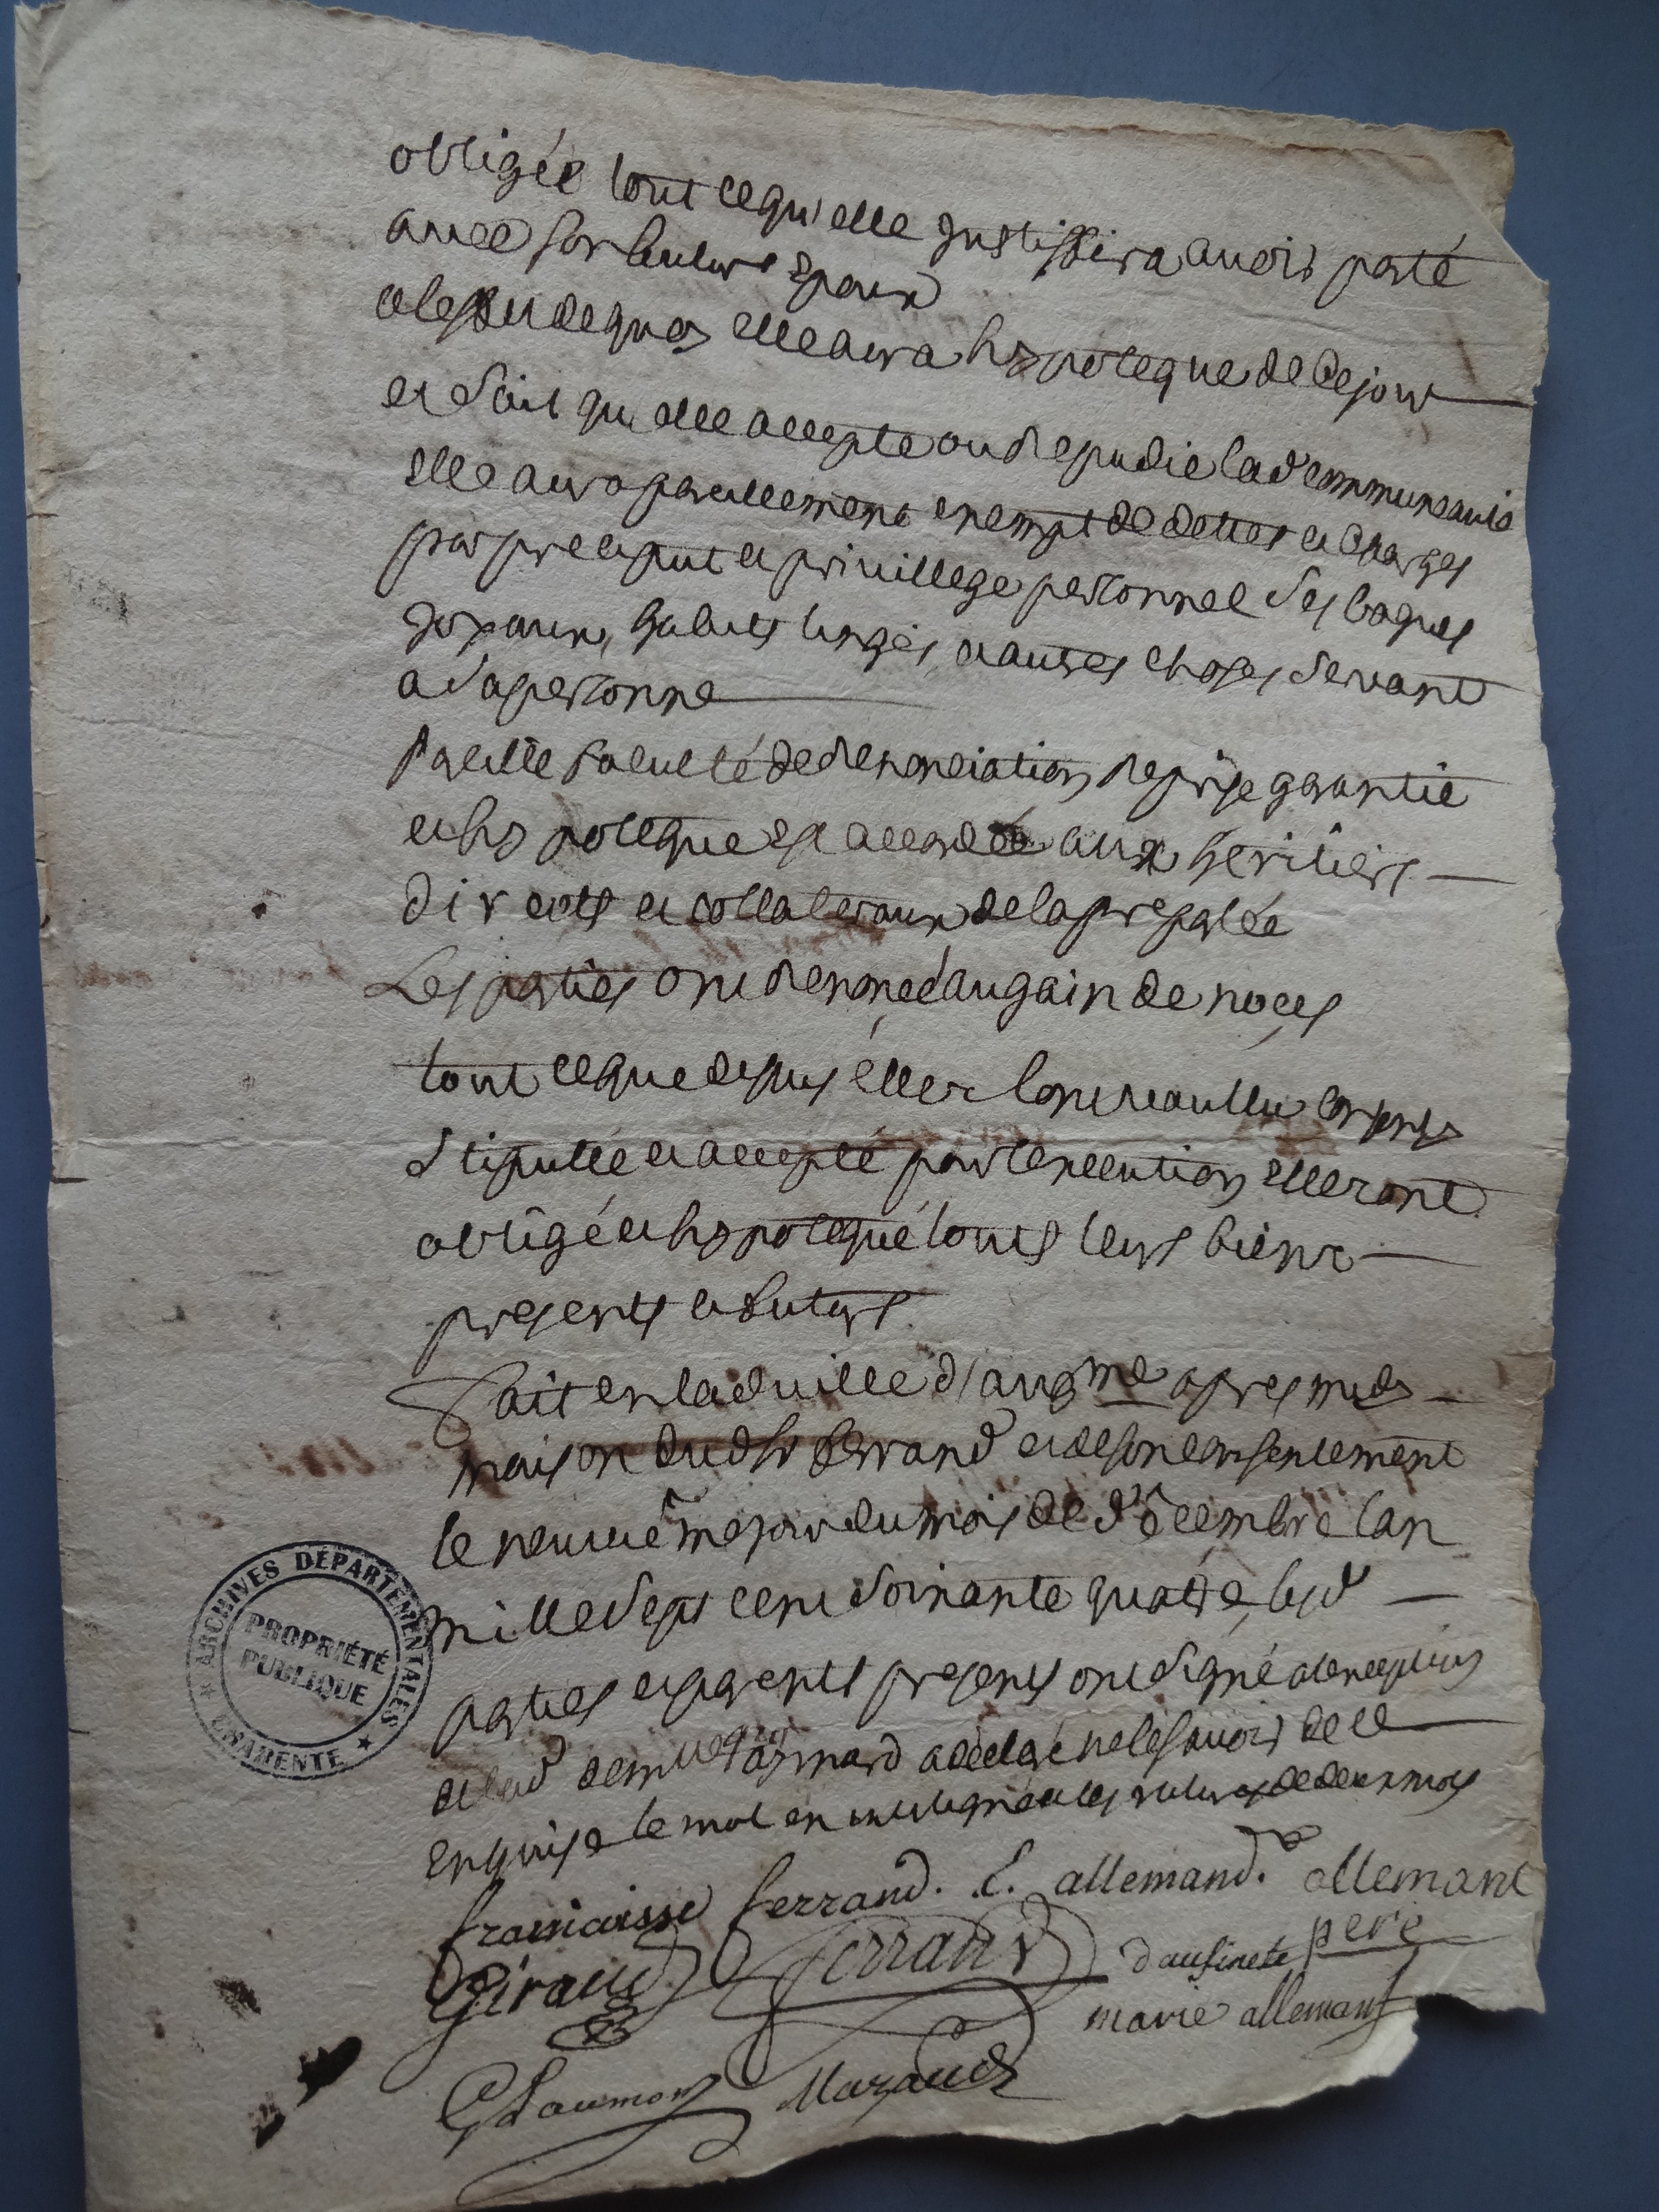 obligée tout ce qu'elle justiffiera avoir porté
avec son futur epoux
a leffet de quoy elle aura hypoteque de ce jour
et soit qu'elle accepte ou repudie lad communeauté
elle aura pareillement exempt de dettes et charges
par preciput et privillege personnel ses bagues
joyaux, habits linges, et autres choses servant
a sa personne
pareille faculté de renonciation reprise garantie
et hypoteque est accordée aux heritiers
directs et collateraux de la preparlée
Les parties ont renoncé au gain de noces
tout ce que dessus elles l'ont voullu
stipullé et accepté pour l'execution elles ont
obligé et hypotequé touts leurs biens
presents et futurs.
Fait en lad ville d'angme apres midy
maison dud sr ferrand et de son consentement
le neuvième jour du mois de décembre l'an
mille sept cent soixante quatre, lesd
parties et parents presents ont signé a lexception
de lad demlle a declaré ne le savoir de ce
enquise le mot en interligne et les ratures de deux mots
francoisse ferrand. allemand. allemant
pere
Giraud ferrand
marie allemant
Glaumon Mazaud
ARCHIVES DÉPARTEMENTALES
PROPRIÉTÉ
PUBLIQUE
CHARENTE